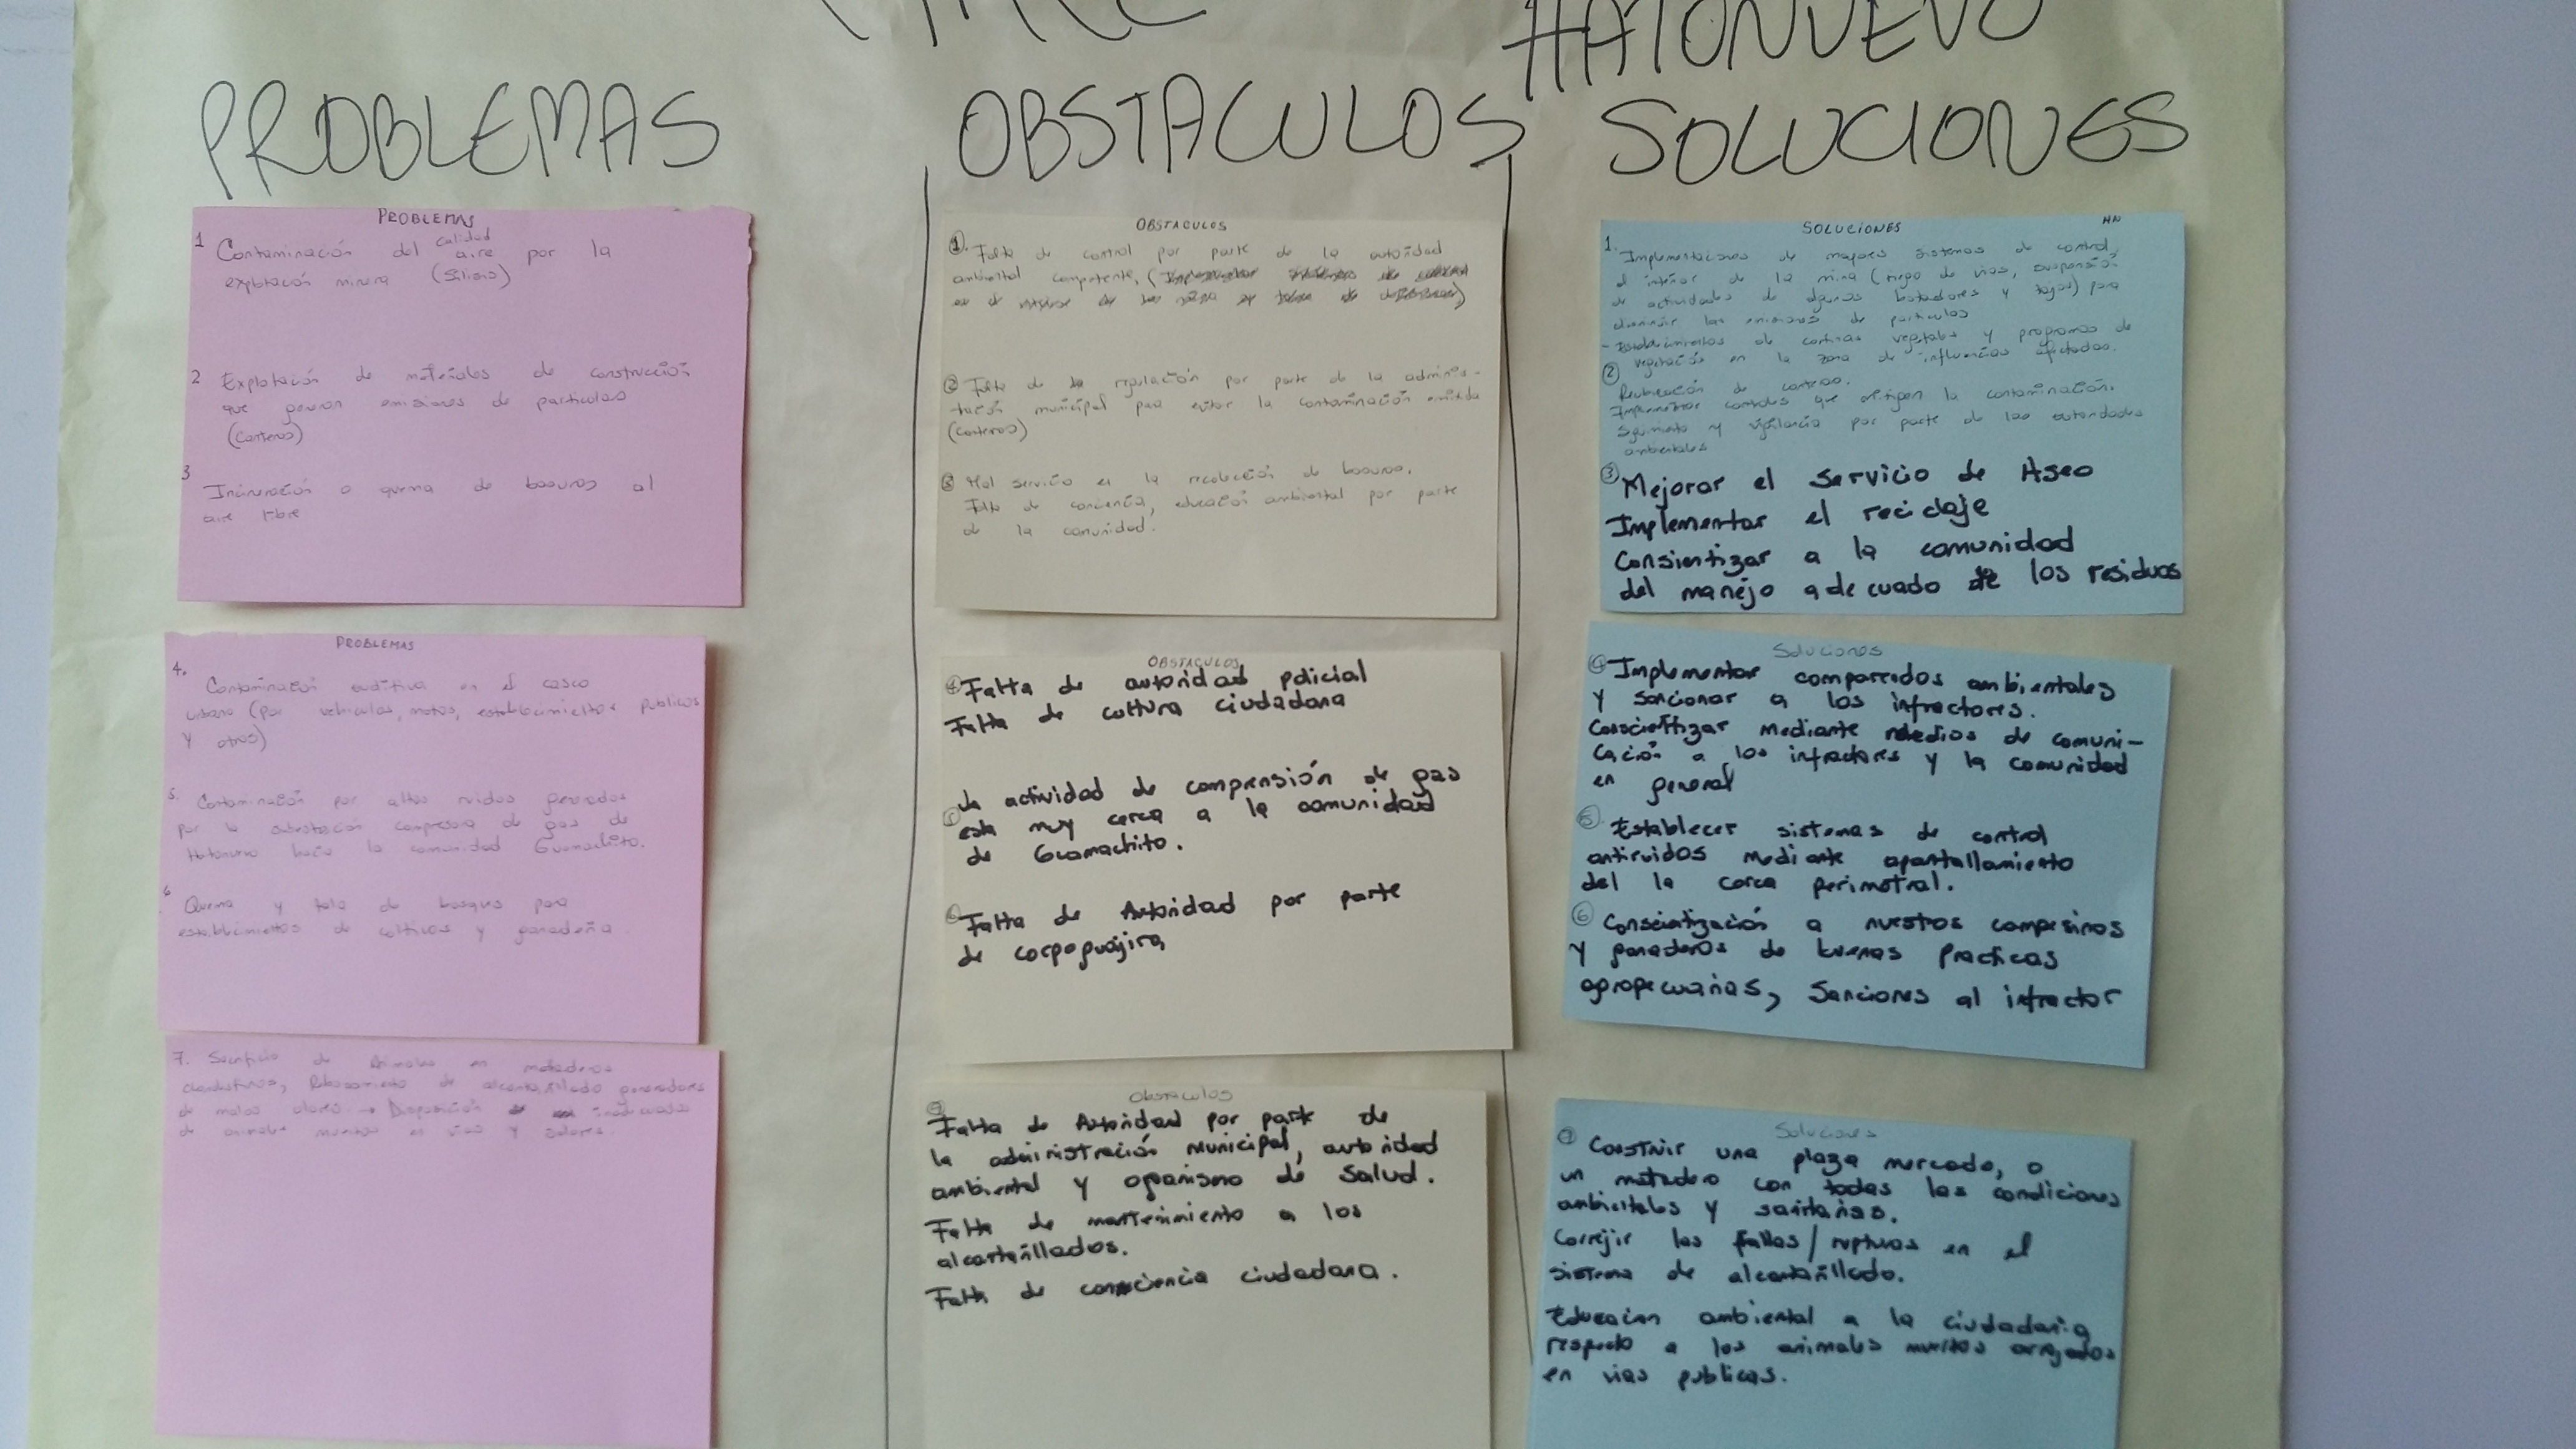 HATONUEVO
PROBLEMAS
PROBLEMAS
1 Contaminación del calidad aire por la
explotación minera (Silisio)
2 Explotación de materiales de construcción
que generan emisiones de particulas
(Canteras)
3 Incineración o quema de basuras al
aire libre
PROBLEMAS
4. Contaminación auditiva en el casco
urbano (por vehiculos, motos, establecimientos publicos
y otros)
5. Contaminación por altos ruidos generados
por la subestación compresora de gas de
Hatonuevo hacia la comunidad Guamachito.
6 Quema y tala de bosques para
establecimientos de cultivos y ganadería
7. Sacrificio de Animales en mataderos
clandestinos, Rebosamiento de alcantarillado generadores
de malos olores → Disposición inadecuada
de animales muertos en vias y solares.
OBSTACULOS
OBSTACULOS
1. Falta de control por parte de la autoridad
ambiental competente, (
② Falta de regulación por parte de la adminis-
tración municipal para evitar la contaminación emitida
(canteras)
③ Mal servicio en la recolección de basuras.
Falta de conciencia, educación ambiental por parte
de la comunidad.
OBSTACULOS
④ Falta de autoridad policial
Falta de cultura ciudadana
⑤ La actividad de comprensión de gas
esta muy cerca a la comunidad
de Guamachito.
⑥ Falta de Autoridad por parte
de corpoguajira
Obstaculos
⑦ Falta de Autoridad por parte de
la administración Municipal, autoridad
ambiental y organismo de Salud.
Falta de mantenimiento a los
alcantarillados.
Falta de consciencia ciudadana.
SOLUCIONES
SOLUCIONES HN
1. Implementaciones de mayores sistemas de control
al interior de la mina (riego de vias, suspensión
de actividades de algunos botaderos y tajos) para
disminuir las emisiones de particulas
- Establecimientos de cortinas vegetales y programas de
vegetación en la zona de influencias afectadas.
② Reubicación de canteras.
Implementar controles que mitigen la contaminación.
Seguimiento y vigilancia por parte de las autoridades
ambientales
③ Mejorar el servicio de Aseo
Implementar el reciclaje
Consientizar a la comunidad
del manejo adecuado de los residuos
Soluciones
④ Implementar comparendos ambientales
y sancionar a los infractores.
Conscientizar mediante medios de comuni-
cación a los infractores y la comunidad
en general
⑤. Establecer sistemas de control
antiruidos mediante apantallamiento
del la cerca perimetral.
⑥ Conscientización a nuestos campesinos
y ganaderos de buenas practicas
agropecuarias, Sanciones al infractor
Soluciones
⑦ Construir una plaza mercado, o
un matadero con todas las condiciones
ambientales y sanitarias.
Correjir las fallas/rupturas en el
sistema de alcantarillado.
Educacion ambiental a la ciudadania
respecto a los animales muertos arrojados
en vias publicas.